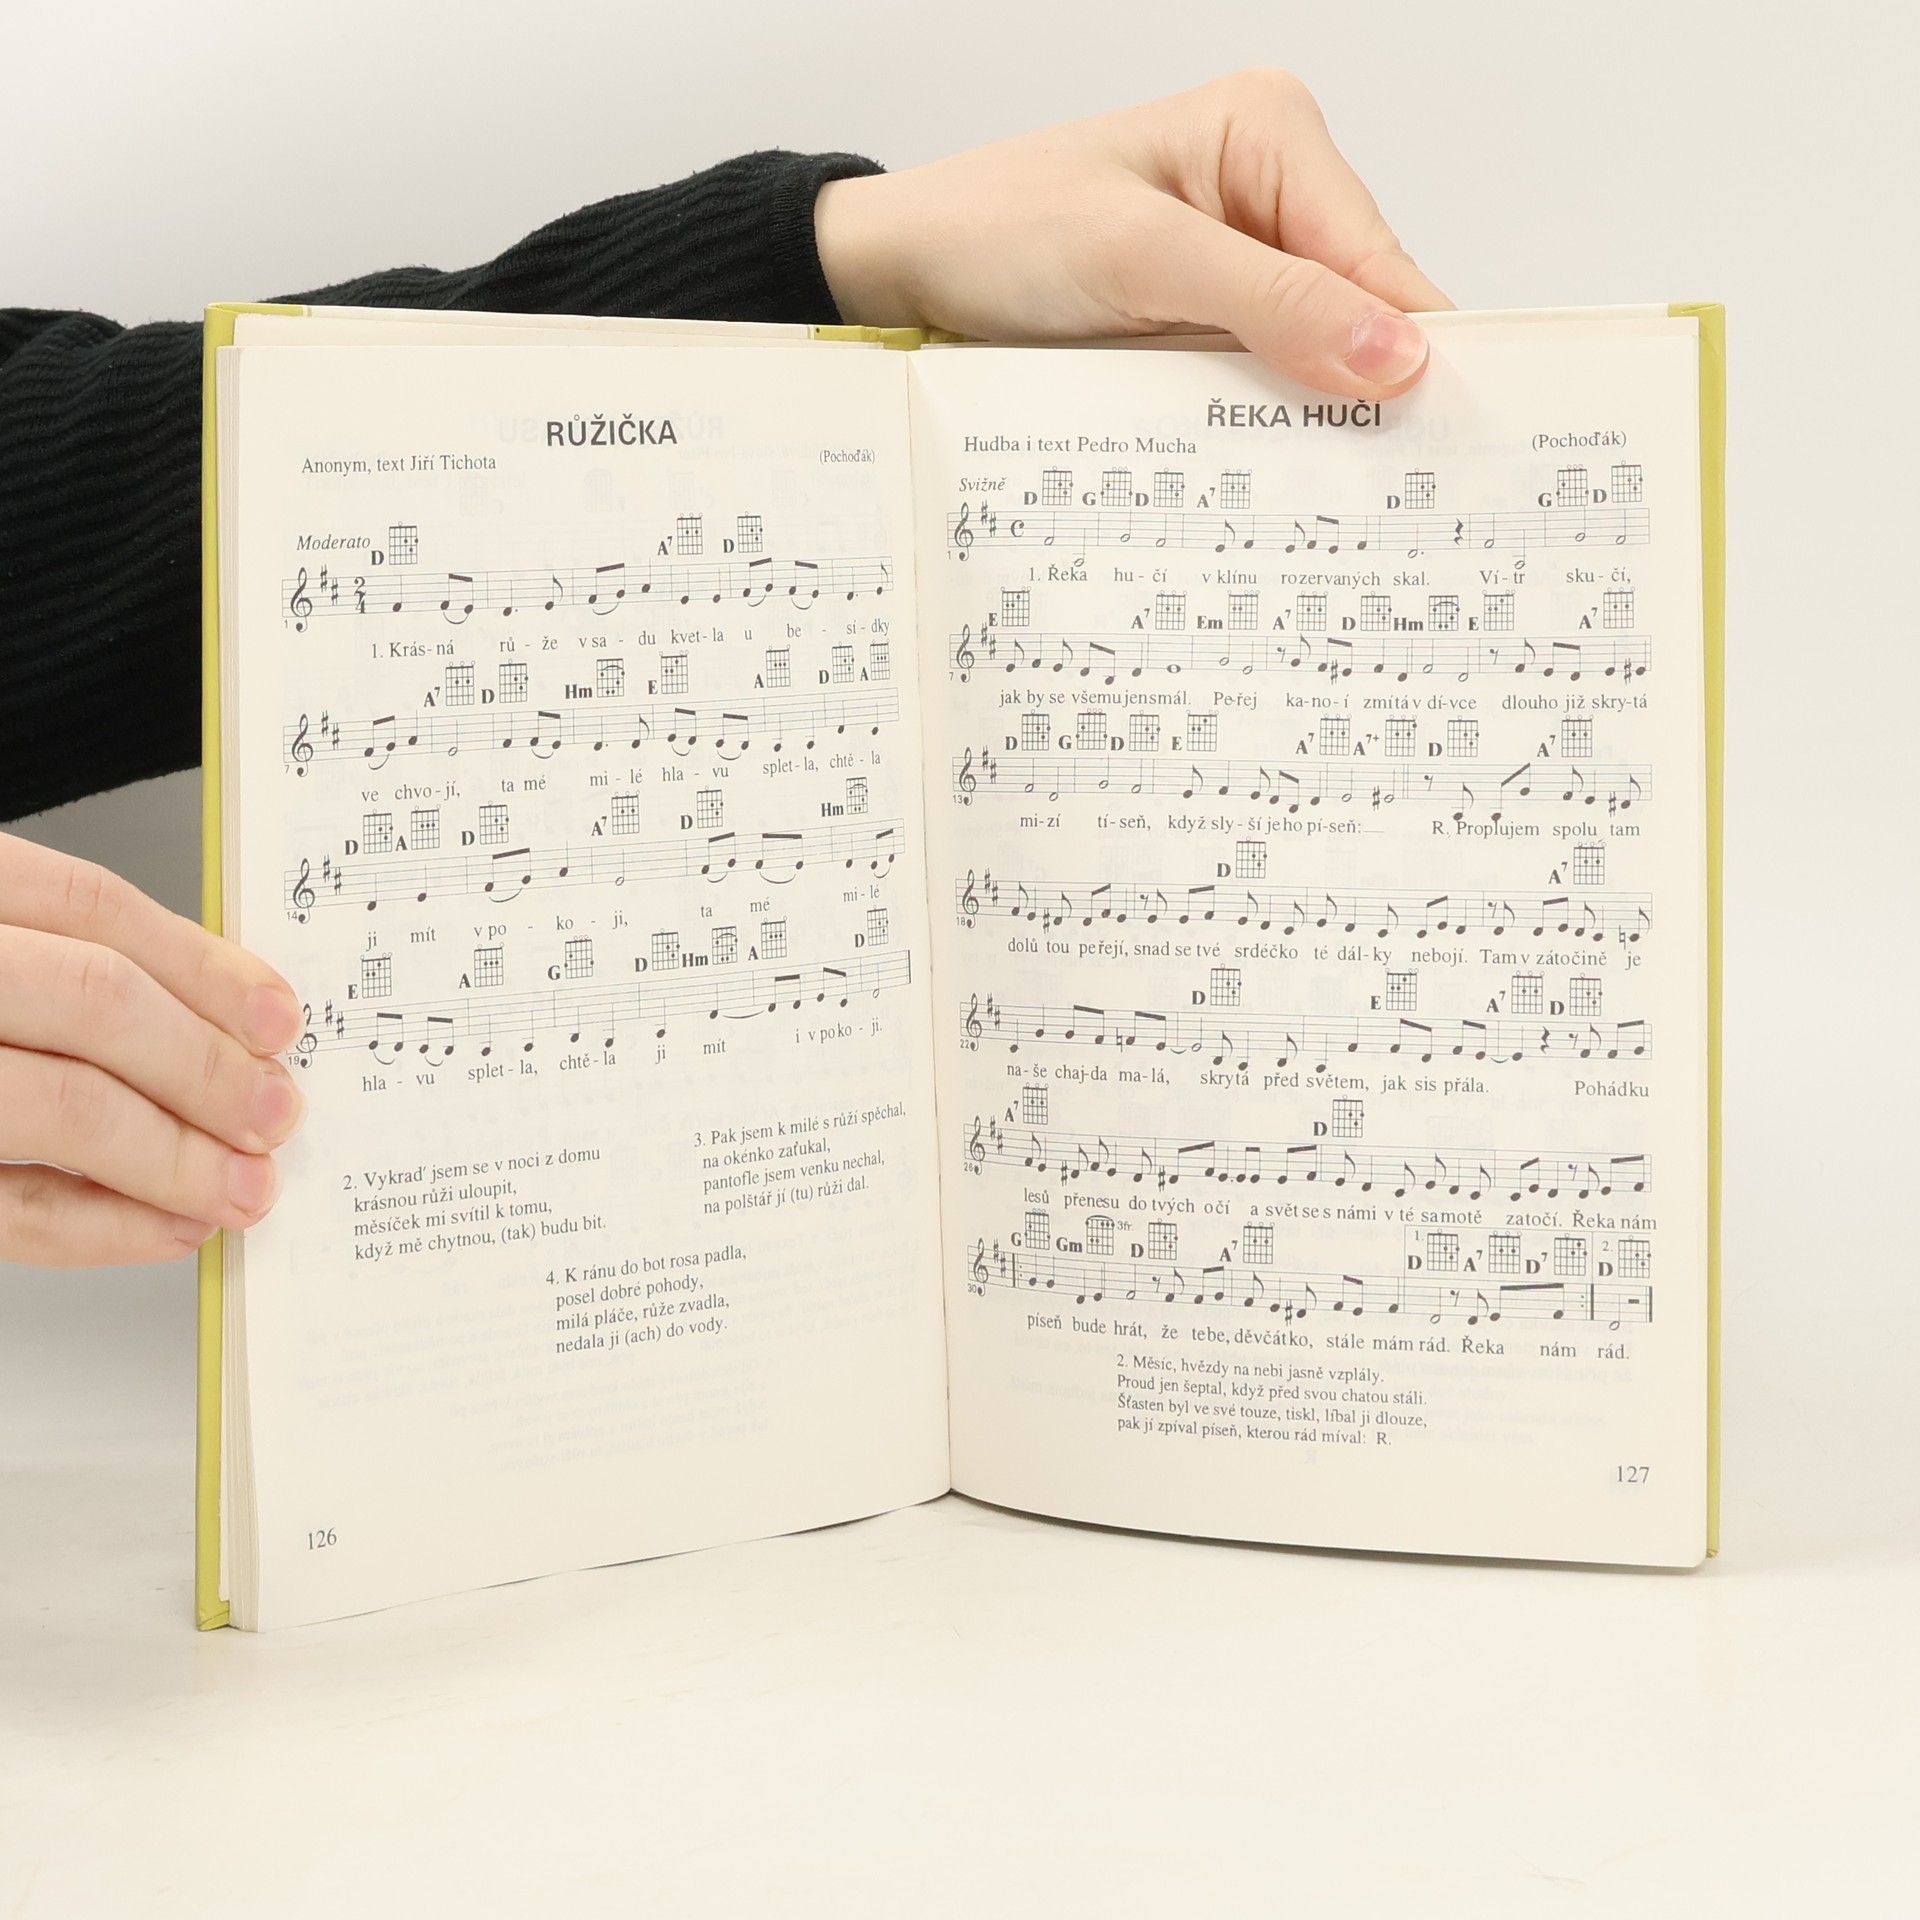 RŮŽIČKA
Anonym, text Jiří Tichota
(Pochoďák)
Moderato
D A7 D
2
4
1
1. Krás- ná rů - že v sa - du kvet- la u be - sí- dky
A7 D Hm E A D A
7
ve chvo - jí, ta mé mi - lé hla - vu splet- la, chtě - la
D A D A7 D Hm
14
ji mít v po - ko - ji, ta mé mi - lé
E A G D Hm A D
19
hla - vu splet - la, chtě - la ji mít i v poko - ji.
2. Vykraď jsem se v noci z domu
krásnou růži uloupit,
měsíček mi svítil k tomu,
když mě chytnou, (tak) budu bit.
3. Pak jsem k milé s růží spěchal,
na okénko zaťukal,
pantofle jsem venku nechal,
na polštář jí (tu) růži dal.
4. K ránu do bot rosa padla,
posel dobré pohody,
milá pláče, růže zvadla,
nedala ji (ach) do vody.
126
ŘEKA HUČÍ
Hudba i text Pedro Mucha
(Pochoďák)
Svižně
D G D A7 D G D
1
1. Řeka hu - čí v klínu rozervaných skal. Ví- tr sku - čí,
E A7 Em A7 D Hm E A7
7
jak by se všemu jen smál. Pe-řej ka-no- í zmítá v dí-vce dlouho již skry-tá
D G D E A7 A7+ D A7
13
mi- zí tí- seň, když sly - ší jeho pí-seň: R. Proplujem spolu tam
D A7
18
dolů tou peřejí, snad se tvé srdéčko té dál - ky nebojí. Tam v zátočině je
D E A7 D
22
na- še chaj-da ma- lá, skrytá před světem, jak sis přála. Pohádku
A7 D
26
lesů přenesu do tvých očí a svět se s námi v té samotě zatočí. Řeka nám
G Gm 3fr. D A7 1. D A7 D7 2. D
30
píseň bude hrát, že tebe, děvčátko, stále mám rád. Řeka nám rád.
2. Měsíc, hvězdy na nebi jasně vzplály.
Proud jen šeptal, když před svou chatou stáli.
Šťasten byl ve své touze, tiskl, líbal ji dlouze,
pak jí zpíval píseň, kterou rád míval: R.
127